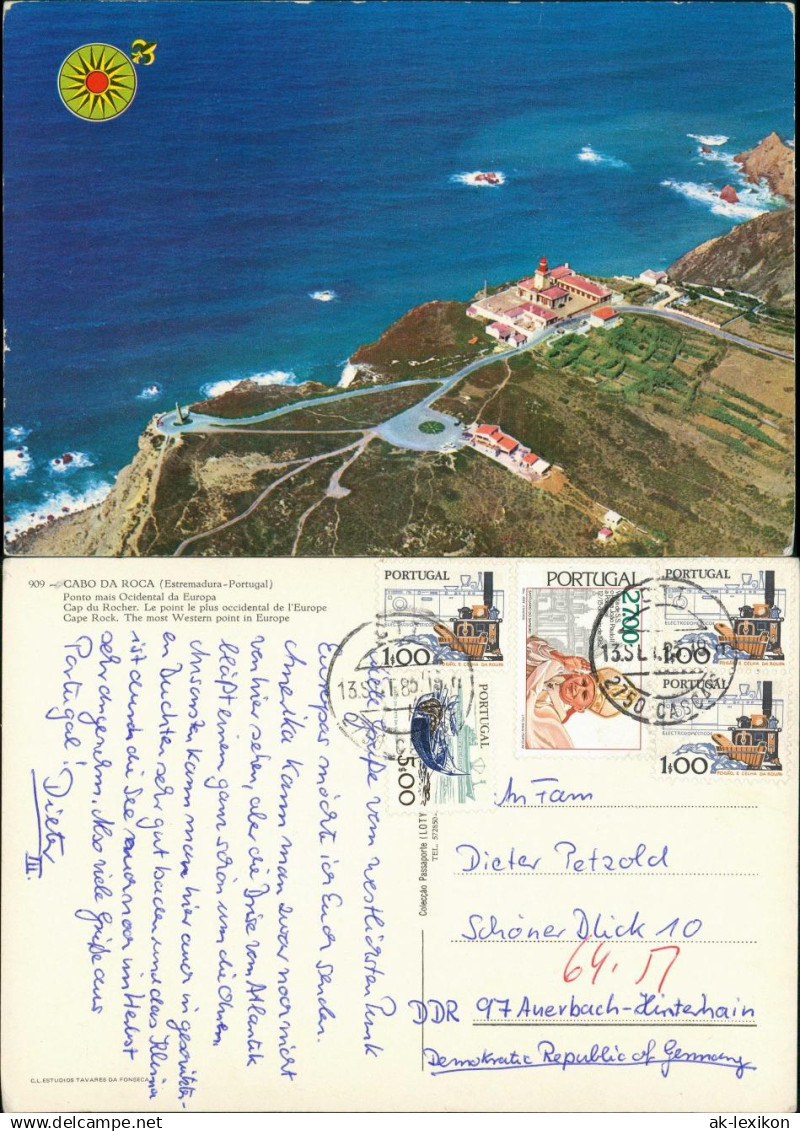 909 - CABO DA ROCA (Estremadura-Portugal)
Ponto mais Ocidental da Europa
Cap du Rocher. Le point le plus occidental de l'Europe
Cape Rock. The most Western point in Europe
PORTUGAL
1$00
PORTUGAL
27$00
PORTUGAL
ELECTRODOMÉSTICOS
1$00
FOGÃO, E CELHA DA ROUPA
PORTUGAL
1$00
FOGÃO, E CELHA DA ROUPA
PORTUGAL
5$00
13.SET.85
2750 CASCAIS
Liebe Grüße vom westlichsten Punkt
Europas möchte ich Euch senden.
Amerika kann man zwar noch nicht
von hier sehen, aber die Brise vom Atlantik
bläst einem ganz schön um die Ohren.
Ansonsten kann man hier auch in geschützter
Buchten sehr gut baden und das Klima
ist durch die See auch noch im Herbst
sehr angenehm. Also viele Grüße aus
Portugal!
Dieter
III.
An Fam
Dieter Petzold
Schöner Blick 10
64.
DDR 97 Auerbach-Hinterhain
Demokratic Republic of Germany
Colecção Passaporte (LOTY
TEL. 572850
C.L. ESTUDIOS TAVARES DA FONSECA
ak-lexikon.com